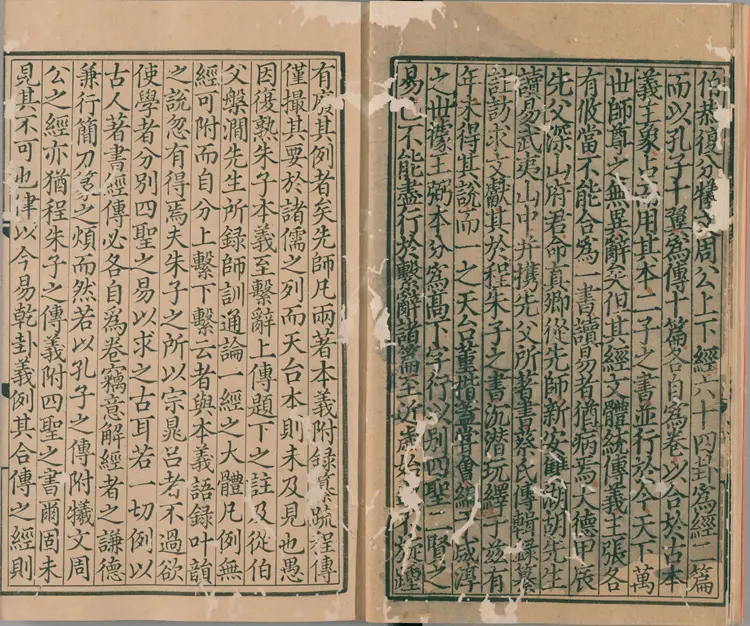 伯恭復分犧文周公上下經六十四卦爲經二篇
而以孔子十翼爲傳十篇各自爲卷以合於古本
義主象占其用其本二子之書並行於今天下萬
世師尊之無異辭矣但其經文體統傳義主張各
有攸當不能合爲一書讀易者猶病焉大德甲辰
先父深山府君命真卿從先師新安雙湖胡先生
讀易武夷山中并攜先父所著書蔡氏傳輯録纂
註訪求文獻其於程朱子之書沉潛玩繹于兹有
年未得其說而一之天台董楷蓋嘗會經咸淳
之世據王弼本分爲高下字行以別四聖二賢之
易已不能盡行於繫辭諸篇至近歲始於旅
有處其例者矣先師凡兩著本義附録纂疏程傳
僅撮其要於諸儒之列而天台本則未及見也愚
因復熟朱子本義至繫辭上傳題下之註及從伯
父槃澗先生所録師訓通論一經之大體凡例無
經可附而自分上繫下繫云者與本義語録叶韻
之說忽有得焉夫朱子之所以宗晁吕者不過欲
使學者分別四聖之易以求之古耳若一切例以
古人著書經傳必各自爲卷竊意解經者之謙德
兼行簡刀筆之煩而然若以孔子之傳附犧文周
公之經亦猶程朱子之傳義附四聖之書爾固未
見其不可也津以今易乾卦義例其合傳之經則